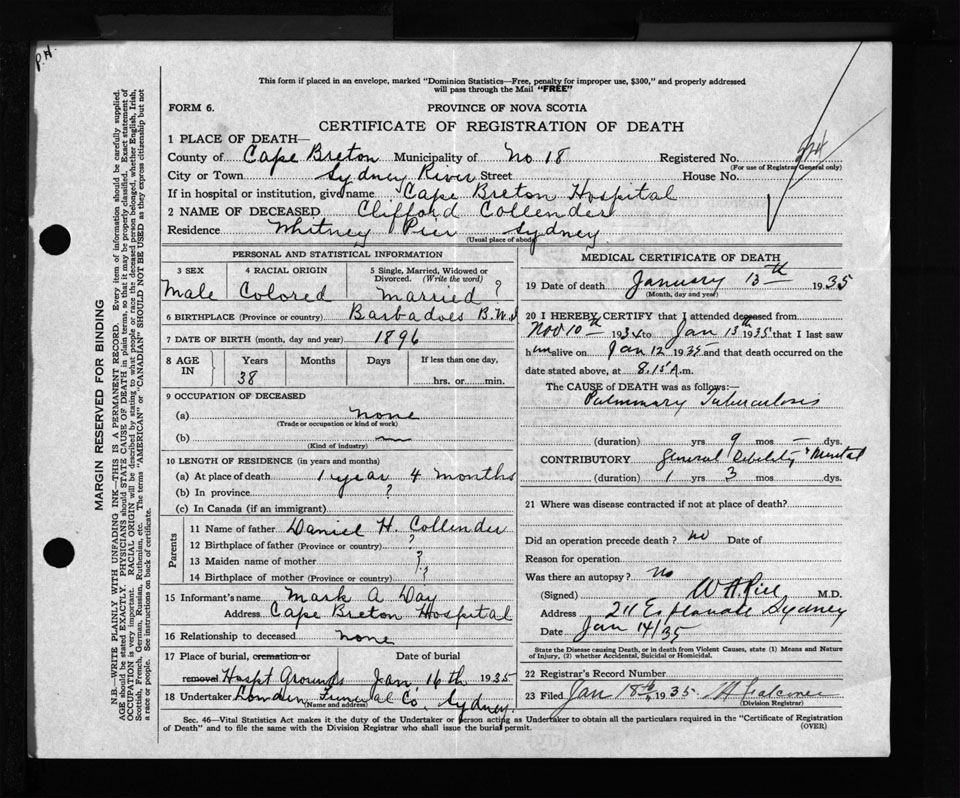 P.H.
This form if placed in an envelope, marked "Dominion Statistics—Free, penalty for improper use, $300," and properly addressed
will pass through the Mail "FREE"
FORM 6.
PROVINCE OF NOVA SCOTIA
CERTIFICATE OF REGISTRATION OF DEATH
1 PLACE OF DEATH—
County of Cape Breton Municipality of No 18 Registered No.
(For use of Registrar General only)
City or Town Sydney River Street House No.
If in hospital or institution, give name Cape Breton Hospital
2 NAME OF DECEASED Clifford Collender
Residence Whitney Pier Sydney
(Usual place of abode)
PERSONAL AND STATISTICAL INFORMATION
3 SEX 4 RACIAL ORIGIN 5 Single, Married, Widowed or
Divorced. (Write the word)
Male Colored married ?
6 BIRTHPLACE (Province or country) Barbadoes
7 DATE OF BIRTH (month, day and year) 1896
8 AGE IN Years Months Days If less than one day,
38 hrs. or min.
9 OCCUPATION OF DECEASED
(a) none
(Trade or occupation or kind of work)
(b) —
(Kind of industry)
10 LENGTH OF RESIDENCE (in years and months)
(a) At place of death 1 year 4 months
(b) In province ?
(c) In Canada (if an immigrant)
Parents
11 Name of father Daniel H. Collender
12 Birthplace of father (Province or country) ?
13 Maiden name of mother ?
14 Birthplace of mother (Province or country) ?
15 Informant's name Mark A Day
Address Cape Breton Hospital
16 Relationship to deceased none
17 Place of burial, cremation or Date of burial
removal Hospt Grounds Jan 16th 1935
18 Undertaker Funeral Co. Sydney
(Name and address)
MEDICAL CERTIFICATE OF DEATH
19 Date of death January 13th 1935
(Month, day and year)
20 I HEREBY CERTIFY that I attended deceased from
Nov 10th 1934 to Jan 13th 1935 that I last saw
him alive on Jan 12 1935 and that death occurred on the
date stated above, at 8.15 A.m.
The CAUSE OF DEATH was as follows:—
Pulmonary Tuberculosis
(duration) yrs 9 mos — dys.
CONTRIBUTORY General Debility & Mental
(duration) 1 yrs 3 mos. dys.
21 Where was disease contracted if not at place of death?
Did an operation precede death? no Date of
Reason for operation
Was there an autopsy? No
(Signed) M.D.
Address 211 Esplanade Sydney
Date Jan 14/35
State the Disease causing Death, or in death from Violent Causes, state (1) Means and Nature
of Injury, (2) whether Accidental, Suicidal or Homicidal.
22 Registrar's Record Number
23 Filed Jan 18th 1935
(Division Registrar)
Sec. 46—Vital Statistics Act makes it the duty of the Undertaker or person acting as Undertaker to obtain all the particulars required in the "Certificate of Registration
of Death" and to file the same with the Division Registrar who shall issue the burial permit.
(OVER)
MARGIN RESERVED FOR BINDING
N.B.—WRITE PLAINLY WITH UNFADING INK—THIS IS A PERMANENT RECORD. Every item of information should be carefully supplied.
AGE should be stated EXACTLY. PHYSICIANS should STATE CAUSE OF DEATH in plain terms, so that it may be properly classified. Exact statement of
OCCUPATION is very important. RACIAL ORIGIN will be described by stating to what people or race the deceased person belonged, whether English, Irish,
Scottish, French, German, Russian, Ruthenian, etc. The terms "AMERICAN" or "CANADIAN" SHOULD NOT BE USED as they express citizenship but not
a race or people. See instructions on back of certificate.